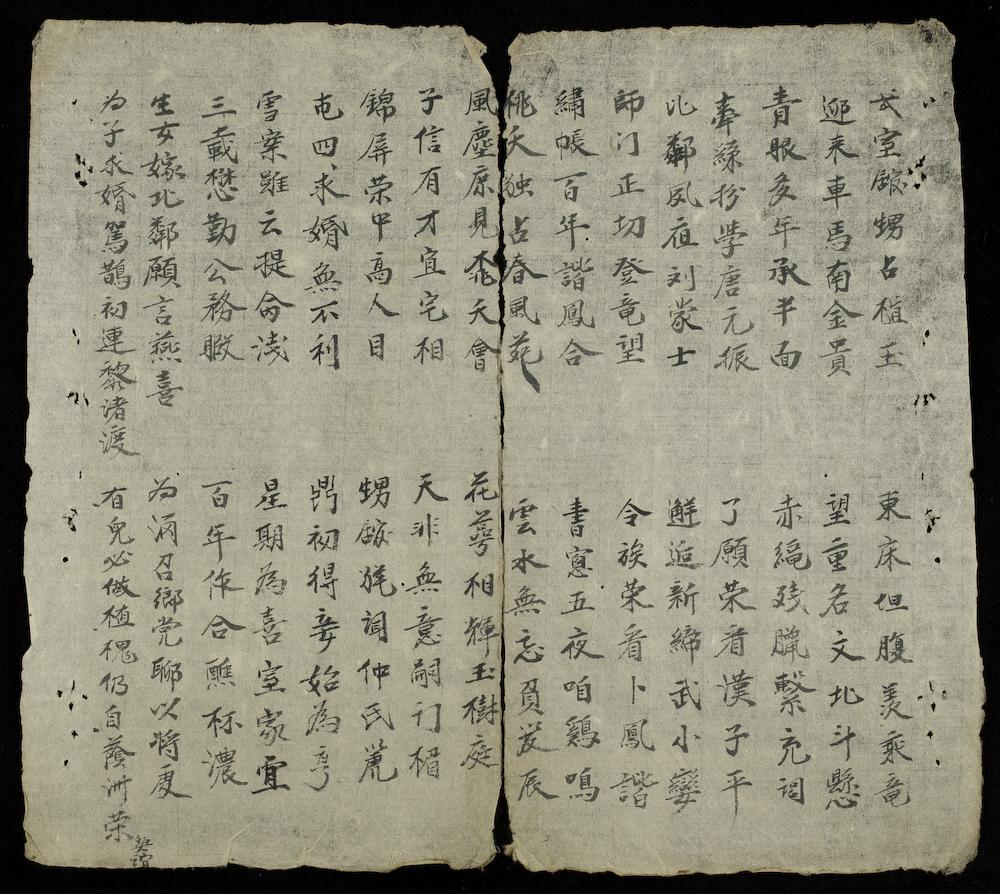 弍室館甥占植玉 東床坦腹羡乘竜
迎来車馬南金貴 望重名文北斗懸
青眼多年承半面 赤繩残臘繫充詞
牽絲抄学唐元振 了願荣看漢子平
比鄰夙刘蒙士 邂逅新締武小孌
師门正切登竜望 令族荣看卜鳳諧
繡帳百年諧鳳合 書窓五夜咱鷄鳴
桃夭独占春風苑 雲水無忘負笈辰
風塵庶見飛天會 花萼相輝玉樹庭
子信有才宜宅相 天非無意嗣订楣
錦屏荣中高人目 甥館闻仲氏箎
屯四求婚無不利 鼎初得妾始為亨
雪案雖云提浅 星期為喜室家宜
三載懋勤公務暇 百年作合醮杯濃
生女嫁北鄰願言燕喜 為酒召鄉党聊以将
为子求婚駕鵲初連黎渚渡 有兒必植槐仍自蔭洲荣